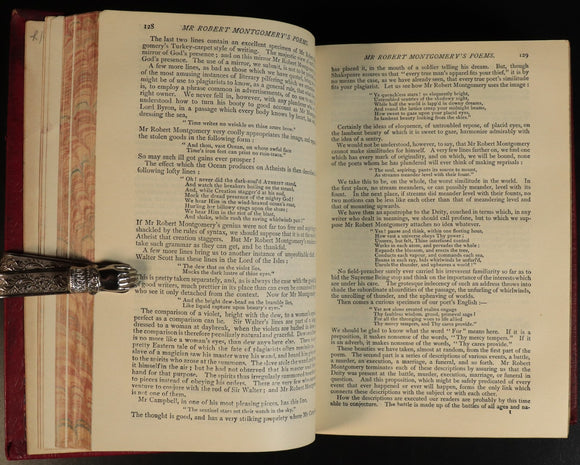 128
MR ROBERT MONTGOMERY'S POEMS.
The last two lines contain an excellent specimen of Mr Robert Mont-
gomery's Turkey-carpet style of writing. The majestic view of earth is the
mirror of God's presence; and on this mirror Mr Robert Montgomery
God's presence. The use of a mirror, we submit, is not to be
A few more lines, as bad as those which we have quoted, bring us to one
of the most amusing instances of literary pilfering which we remember. It
might be of use to plagiarists to know, as a general rule, that what they steal
is, to employ a phrase common in advertisements, of no use to any but the
right owner. We never fell in, however, with any plunderer who so little
understood how to turn his booty to good account as Mr Montgomery.
Lord Byron, in a passage which every body knows by heart, has said, ad-
dressing the sea,
"Time writes no wrinkle on thine azure brow."
Mr Robert Montgomery very coolly appropriates the image, and reproduces
the stolen goods in the following form:
"And thou, vast Ocean, on whose awful face
Time's iron feet can print no ruin-trace."
So may such ill got gains ever prosper!
The effect which the Ocean produces on Atheists is then described in the
following lofty lines:
"Oh! never did the dark-soul'd ATHEIST stand,
And watch the breakers boiling on the strand,
And, while Creation stagger'd at his nod,
Mock the dread presence of the mighty God!
We hear Him in the wind-heaved ocean's roar,
Hurling her billowy crags upon the shore;
We hear Him in the riot of the blast,
And shake, while rush the raving whirlwinds past!"
If Mr Robert Montgomery's genius were not far too free and aspiring to be
shackled by the rules of syntax, we should suppose that it is at the nod of the
Atheist that creation staggers. But Mr Robert Montgomery's readers must
take such grammar as they can get, and be thankful.
A few more lines bring us to another instance of unprofitable theft. Sir
Walter Scott has these lines in the Lord of the Isles:
"The dew that on the violet lies,
Mocks the dark lustre of thine eyes."
This is pretty taken separately, and, as is always the case with the good things
of good writers, much prettier in its place than can even be conceived by those
who see it only detached from the context. Now for Mr Montgomery:
"And the bright dew-bead on the bramble lies,
Like liquid rapture upon beauty's eyes."
The comparison of a violet, bright with the dew, to a woman's eyes, is as
perfect as a comparison can be. Sir Walter's lines are part of a song ad-
dressed to a woman at daybreak, when the violets are bathed in dew; and
the comparison is therefore peculiarly natural and graceful. Dew on a bramble
is no more like a woman's eyes than dew anywhere else. There is a very
pretty Eastern tale of which the fate of plagiarists often reminds us. The
slave of a magician saw his master wave his wand, and heard him give orders
to the spirits who arose at the summons. The slave stole the wand, and waved
it himself in the air; but he had not observed that his master used the left
hand for that purpose. The spirits thus irregularly summoned tore the thief
to pieces instead of obeying his orders. There are very few who can safely
venture to conjure with the rod of Sir Walter; and Mr Robert Montgomery
Mr Campbell, in one of his most pleasing pieces, has this line,
"The sentinel stars set their watch in the sky."
The thought is good, and has a very striking propriety where Mr Campbell
MR ROBERT MONTGOMERY'S POEMS.
129
has placed it, in the mouth of a soldier telling his dream. But, though
Shakspeare assures us that "every true man's apparel fits your thief," it is by
no means the case, as we have already seen, that every true poet's similitude
fits your plagiarist. Let us see how Mr Robert Montgomery uses the image:
"Ye quenchless stars! so eloquently bright,
Untroubled sentries of the shadowy night,
While half the world is lapp'd in downy dreams,
And round the lattice creep your midnight beams,
How sweet to gaze upon your placid eyes,
In lambent beauty looking from the skies!"
Certainly the ideas of eloquence, of untroubled repose, of placid eyes, on
the lambent beauty of which it is sweet to gaze, harmonize admirably with
the idea of a sentry.
We would not be understood, however, to say, that Mr Robert Montgomery
cannot make similitudes for himself. A very few lines further on, we find one
which has every mark of originality, and on which, we will be bound, none
of the poets whom he has plundered will ever think of making reprisals:
"The soul, aspiring, pants its source to mount,
As streams meander level with their fount."
We take this to be, on the whole, the worst similitude in the world. In
the first place, no stream meanders, or can possibly meander, level with its
fount. In the next place, if streams did meander level with their founts, no
two motions can be less like each other than that of meandering level and
that of mounting upwards.
We have then an apostrophe to the Deity, couched in terms which, in any
writer who dealt in meanings, we should call profane, but to which we sup-
pose Mr Robert Montgomery attaches no idea whatever.
"Yes! pause and think, within one fleeting hour,
How vast a universe obeys Thy power;
Unseen, but felt, Thine interfused control
Works in each atom, and pervades the whole;
Expands the blossom, and erects the tree,
Conducts each vapour, and commands each sea,
Beams in each ray, bids whirlwinds be unfurl'd,
Unrols the thunder, and upheaves a world!"
No field-preacher surely ever carried his irreverent familiarity so far as to
bid the Supreme Being stop and think on the importance of the interests which
are under his care. The grotesque indecency of such an address throws into
shade the subordinate absurdities of the passage, the unfurling of whirlwinds,
the unrolling of thunder, and the upheaving of worlds.
Then comes a curious specimen of our poet's English:
"Yet not alone created realms engage
Thy faultless wisdom, grand, primeval sage!
For all the thronging woes to life allied
Thy mercy tempers, and Thy cares provide."
We should be glad to know what the word "For" means here. If it is a
preposition, it makes nonsense of the words, "Thy mercy tempers." If it
is an adverb, it makes nonsense of the words, "Thy cares provide."
These beauties we have taken, almost at random, from the first part of the
poem. The second part is a series of descriptions of various events, a battle,
a murder, an execution, a marriage, a funeral, and so forth. Mr Robert
Montgomery terminates each of these descriptions by assuring us that the
Deity was present at the battle, murder, execution, marriage, or funeral in
question. And this proposition, which might be safely predicated of every
event that ever happened or ever will happen, forms the only link which
connects these descriptions with the subject or with each other.
How the descriptions are executed our readers are probably by this time
able to conjecture. The battle is made up of the battles of all ages and na-